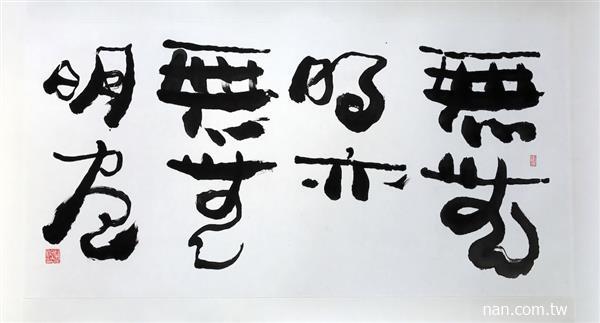 無無
明亦
無無
明盡
nan.com.tw